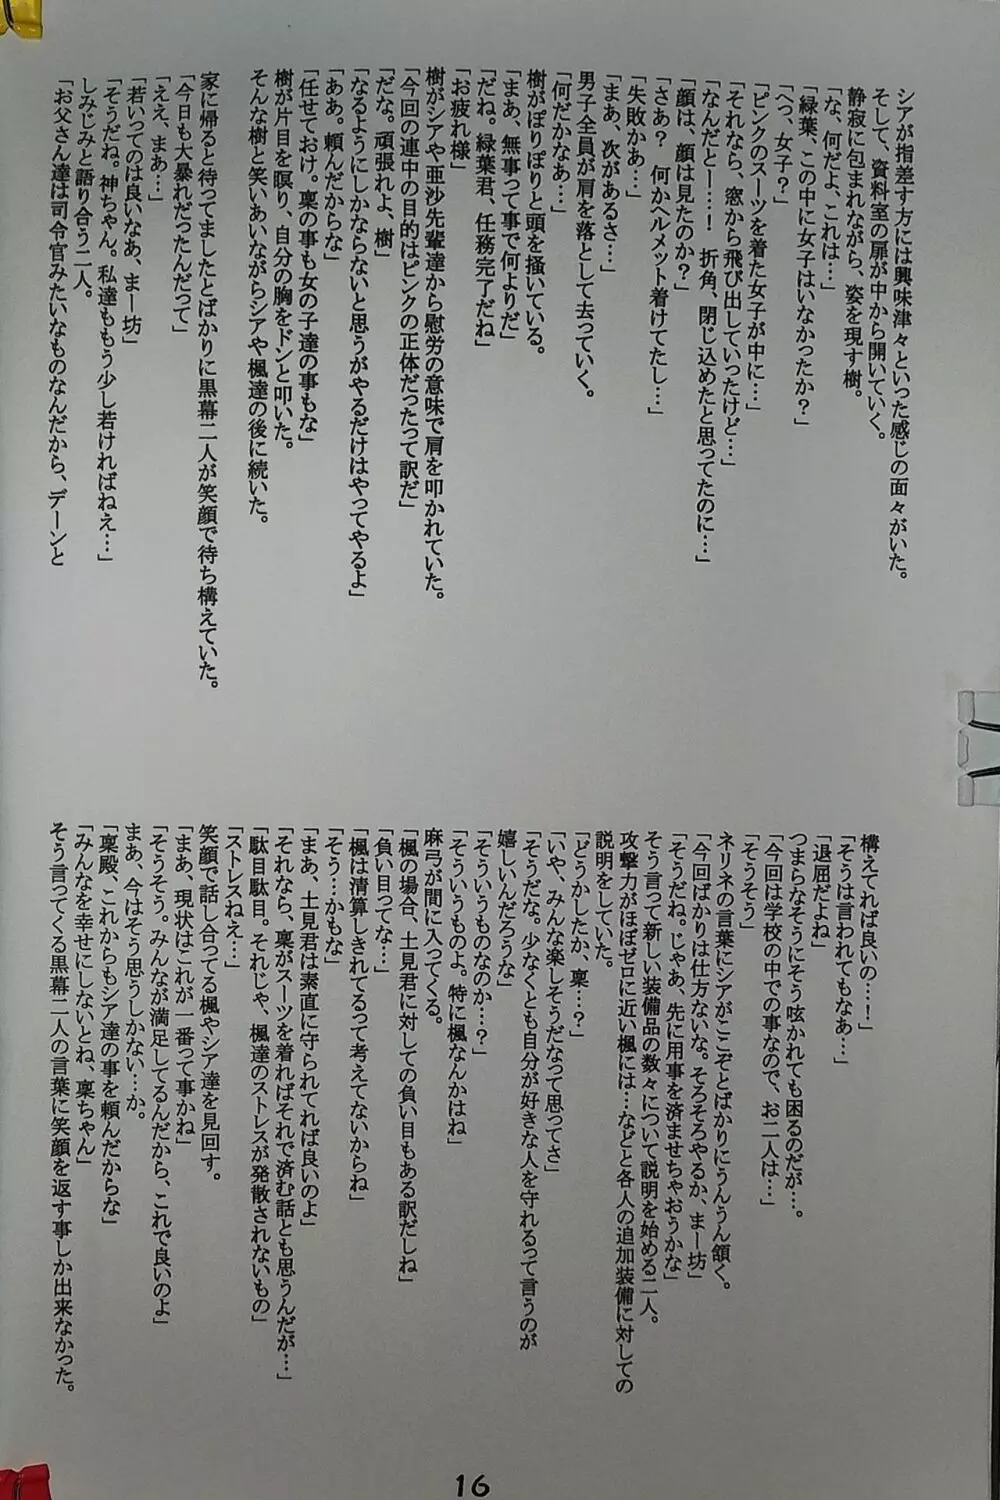 シアが指差す方には興味津々といった感じの面々がいた。
そして、資料室の扉が中から開いていく。
静寂に包まれながら、姿を現す樹。
「な、何だよ、これは…」
「緑葉、この中に女子はいなかったか？」
「へっ、女子？」
「ピンクのスーツを着た女子が中に…」
「それなら、窓から飛び出していったけど…」
「なんだとー……！　折角、閉じ込めたと思ってたのに…」
「顔は、顔は見たのか？」
「さあ？　何かヘルメット着けてたし…」
「失敗かあ…」
「まあ、次があるさ…」
男子全員が肩を落として去っていく。
「何だかなあ…」
樹がぽりぽりと頭を掻いている。
「まあ、無事って事で何よりだ」
「だね。緑葉君、任務完了だね」
「お疲れ様」
樹がシアや亜沙先輩達から慰労の意味で肩を叩かれていた。
「今回の連中の目的はピンクの正体だったって訳だ」
「だな。頑張れよ、樹」
「なるようにしかならないと思うがやるだけはやってやるよ」
「ああ。頼んだからな」
「任せておけ。稟の事も女の子達の事もな」
樹が片目を瞑り、自分の胸をドンと叩いた。
そんな樹と笑いあいながらシアや楓達の後に続いた。
家に帰ると待ってましたとばかりに黒幕二人が笑顔で待ち構えていた。
「今日も大暴れだったんだって」
「ええ、まあ…」
「若いってのは良いなあ、まー坊」
「そうだね。神ちゃん。私達ももう少し若ければねえ…」
しみじみと語り合う二人。
「お父さん達は司令官みたいなものなんだから、デーンと
構えてれば良いの…！」
「そうは言われてもなあ…」
「退屈だよね」
つまらなそうにそう呟かれても困るのだが…。
「今回は学校の中での事なので、お二人は…」
「そうそう」
ネリネの言葉にシアがここぞとばかりにうんうん頷く。
「今回ばかりは仕方ないな。そろそろやるか、まー坊」
「そうだね。じゃあ、先に用事を済ませちゃおうかな」
そう言って新しい装備品の数々について説明を始める二人。
攻撃力がほぼゼロに近い楓には…などと各人の追加装備に対しての
説明をしていた。
「どうかしたか、稟…？」
「いや、みんな楽しそうだなって思ってさ」
「そうだな。少なくとも自分が好きな人を守れるって言うのが
嬉しいんだろうな」
「そういうものなのか…？」
「そういうものよ。特に楓なんかはね」
麻弓が間に入ってくる。
「楓の場合、土見君に対しての負い目もある訳だしね」
「負い目ってな…」
「楓は清算しきれてるって考えてないからね」
「そう…かもな」
「まあ、土見君は素直に守られてれば良いのよ」
「それなら、稟がスーツを着ればそれで済む話とも思うんだが…」
「駄目駄目。それじゃ、楓達のストレスが発散されないもの」
「ストレスねえ…」
笑顔で話し合ってる楓やシア達を見回す。
「まあ、現状はこれが一番って事かね」
「そうそう。みんなが満足してるんだから、これで良いのよ」
まあ、今はそう思うしかない…か。
「稟殿、これからもシア達の事を頼んだからな」
「みんなを幸せにしないとね、稟ちゃん」
そう言ってくる黒幕二人の言葉に笑顔を返す事しか出来なかった。
16